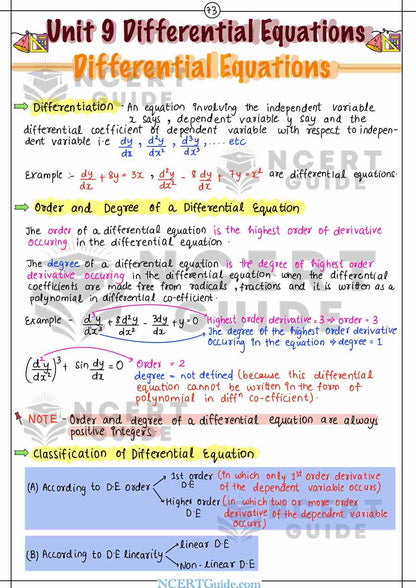 73
Unit 9 Differential Equations
Differential Equations
⇒ Differentiation - An equation involving the independent variable
x says, dependent variable y say and the
differential coefficient of dependent variable with respect to indepen-
dent variable i.e dy/dx , d²y/dx² , d³y/dx³ , .... etc
Example :- dy/dx + 8y = 3x , d²y/dx² - 8 dy/dx + 7y = x² are differential equations.
⇒ Order and Degree of a Differential Equation
The order of a differential equation is the highest order of derivative
occuring in the differential equation.
The degree of a differential equation is the degree of highest order
derivative occuring in the differential equation. when the differential
coefficients are made free from radicals, fractions and it is written as a
polynomial in differential co-efficient.
Example - d³y/dx³ + 8d²y/dx² - 3dy/dx + y = 0 Highest order derivative = 3 → order = 3
→ The degree of the highest order derivative
occuring in the equation → degree = 1
(d²y/dx²)³ + sin dy/dx = 0 Order = 2
degree = not defined (because this differential
equation cannot be written in the form of
polynomial in diffⁿ co-efficient).
NOTE - Order and degree of a differential equation are always
positive integers.
⇒ Classification of Differential Equation
(A) According to D·E order
1st order D·E (In which only 1st order derivative
of the dependent variable occurs)
Higher order D·E (in which two or more order
derivative of the dependent variable
occurs)
(B) According to D·E linearity
linear D·E
Non-linear D·E
NCERT GUIDE
NCERTGuide.com